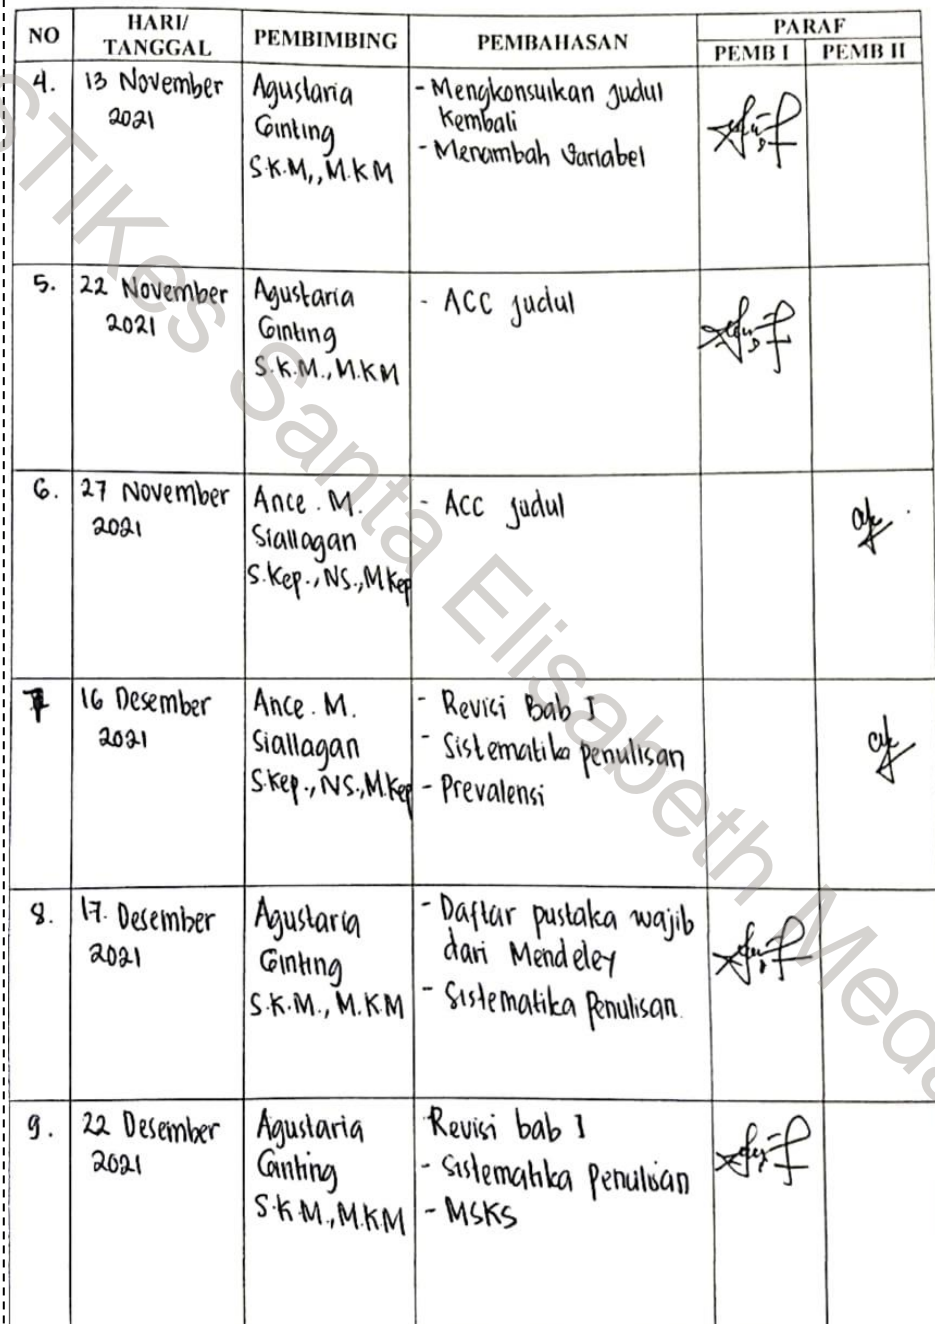 NO HARI/ TANGGAL PEMBIMBING PEMBAHASAN PARAF
PEMB I PEMB II
4. 13 November 2021 Agustaria Ginting S.K.M,, M.K.M
- Mengkonsulkan judul Kembali
- Menambah Variabel
5. 22 November 2021 Agustaria Ginting S.K.M., M.KM
- ACC judul
6. 27 November 2021 Ance. M. Siallagan S.Kep., NS., M.Kep
- ACC judul
7 16 Desember 2021 Ance. M. Siallagan S.Kep., NS., M.Kep
- Revisi Bab I
- Sistematika penulisan
- Prevalensi
8. 17. Desember 2021 Agustaria Ginting S.K.M., M.KM
- Daftar pustaka wajib dari Mendeley
- Sistematika Penulisan.
9. 22 Desember 2021 Agustaria Ginting S.K.M., M.KM
Revisi bab I
- Sistematika Penulisan
- MSKS
STIKes Santa Elisabeth Meda